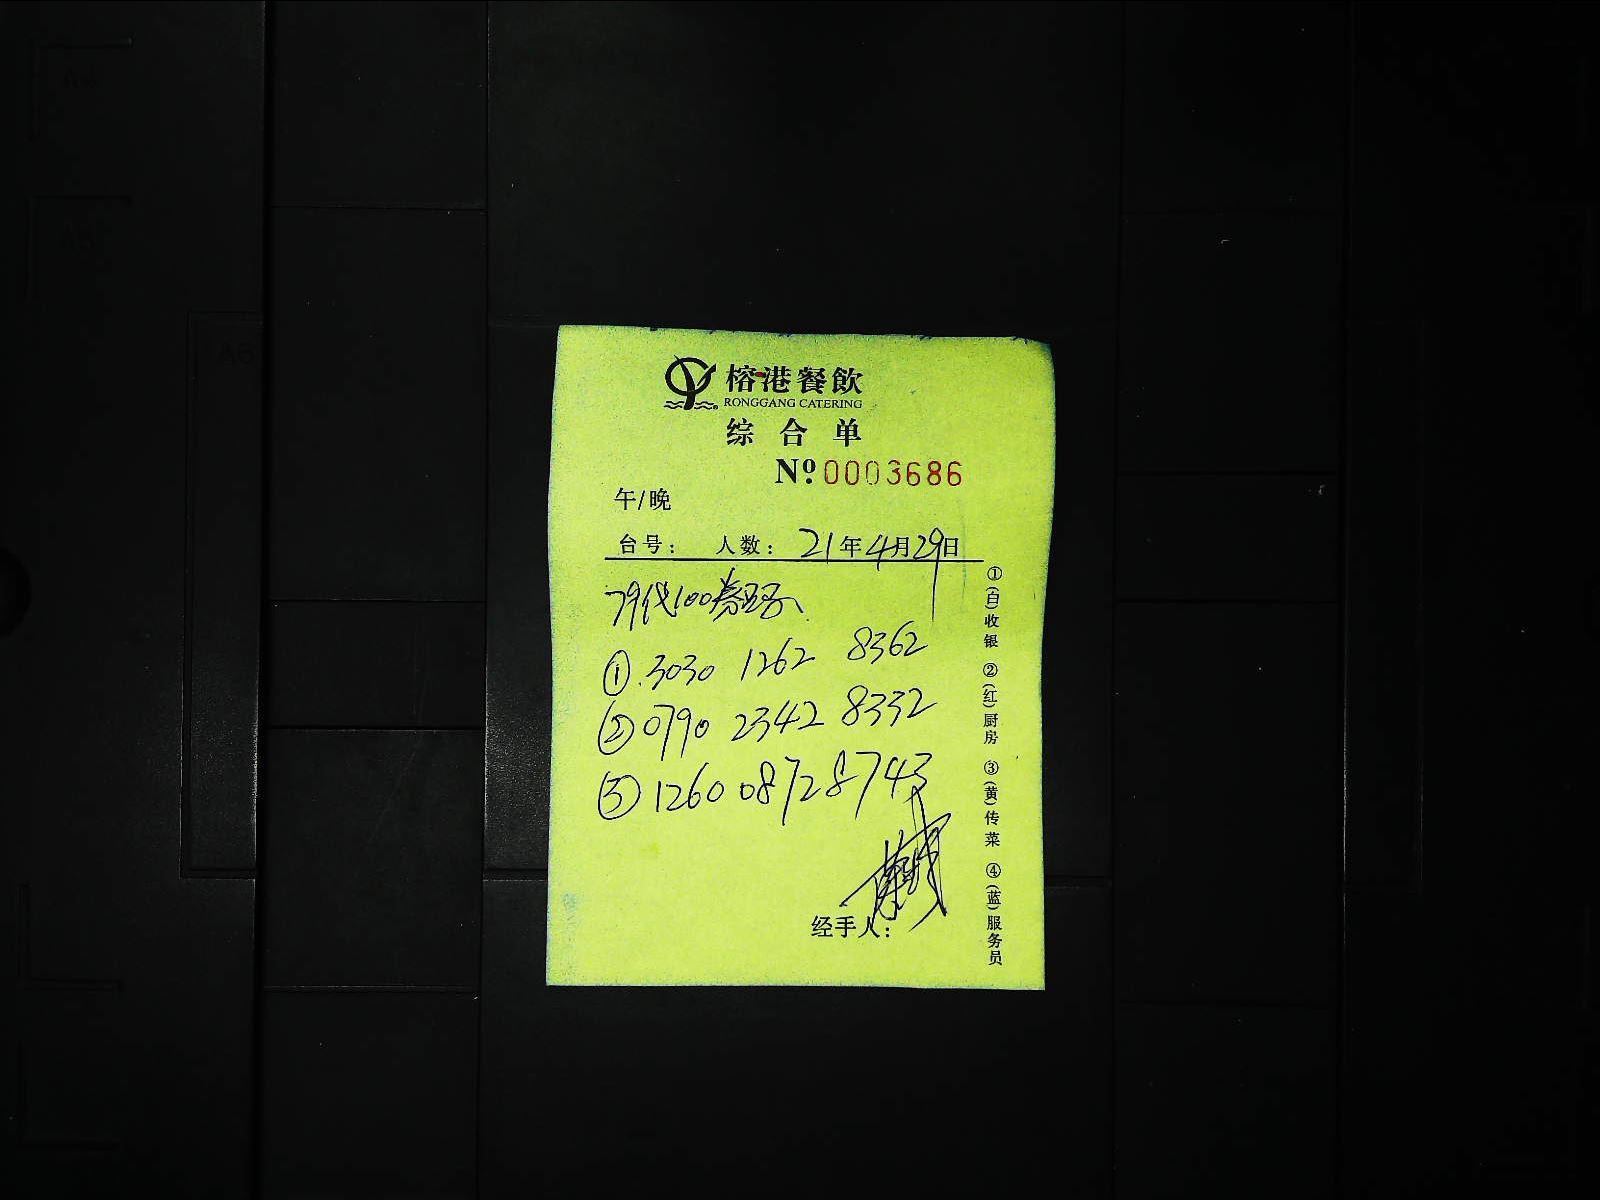 榕港餐飲
RONGGANG CATERING
综合单
Nº 0003686
午/晚
台号： 人数： 21年4月29日
79代100券
① 3030 1262 8362
② 0790 2342 8332
③ 1260 0872 8743
经手人：
①(白)收银 ②(红)厨房 ③(黄)传菜 ④(蓝)服务员
A6